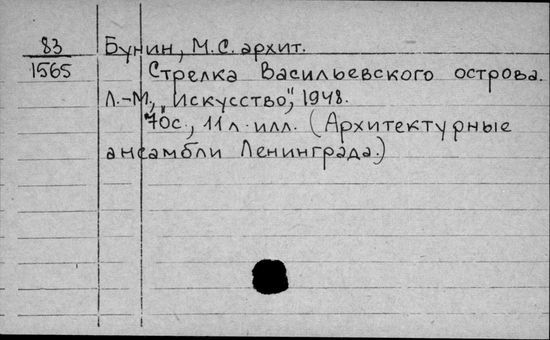 83 Бунин, М.С. архит.
1565 Стрелка Васильевского острова.
Л.-М., "Искусство", 1948.
70с., 11 л. илл. (Архитектурные
ансамбли Ленинграда.)